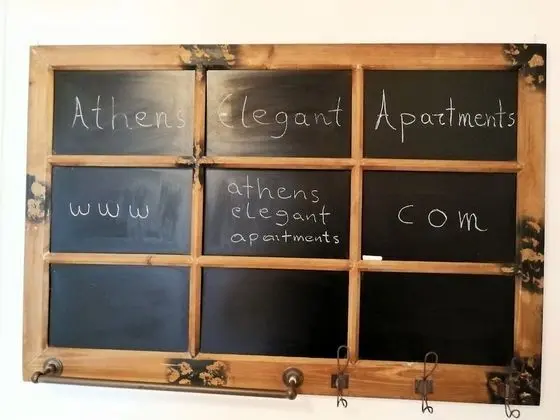 Athens Elegant Apartments
www athens elegant apartments com